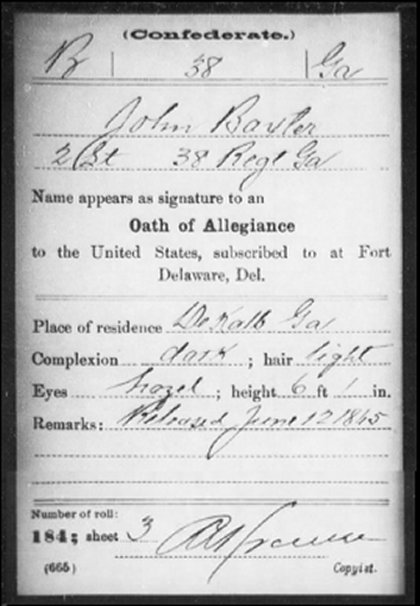 (Confederate.)
B | 38 | Ga
John Baxter
2 Lt 38 Regt Ga
Name appears as signature to an
Oath of Allegiance
to the United States, subscribed to at Fort
Delaware, Del.
Place of residence DeKalb Ga
Complexion dark ; hair light
Eyes hazel ; height 6 ft 1 in.
Remarks: Released June 12 1865
Number of roll:
184; sheet 3
(665) Copyist.